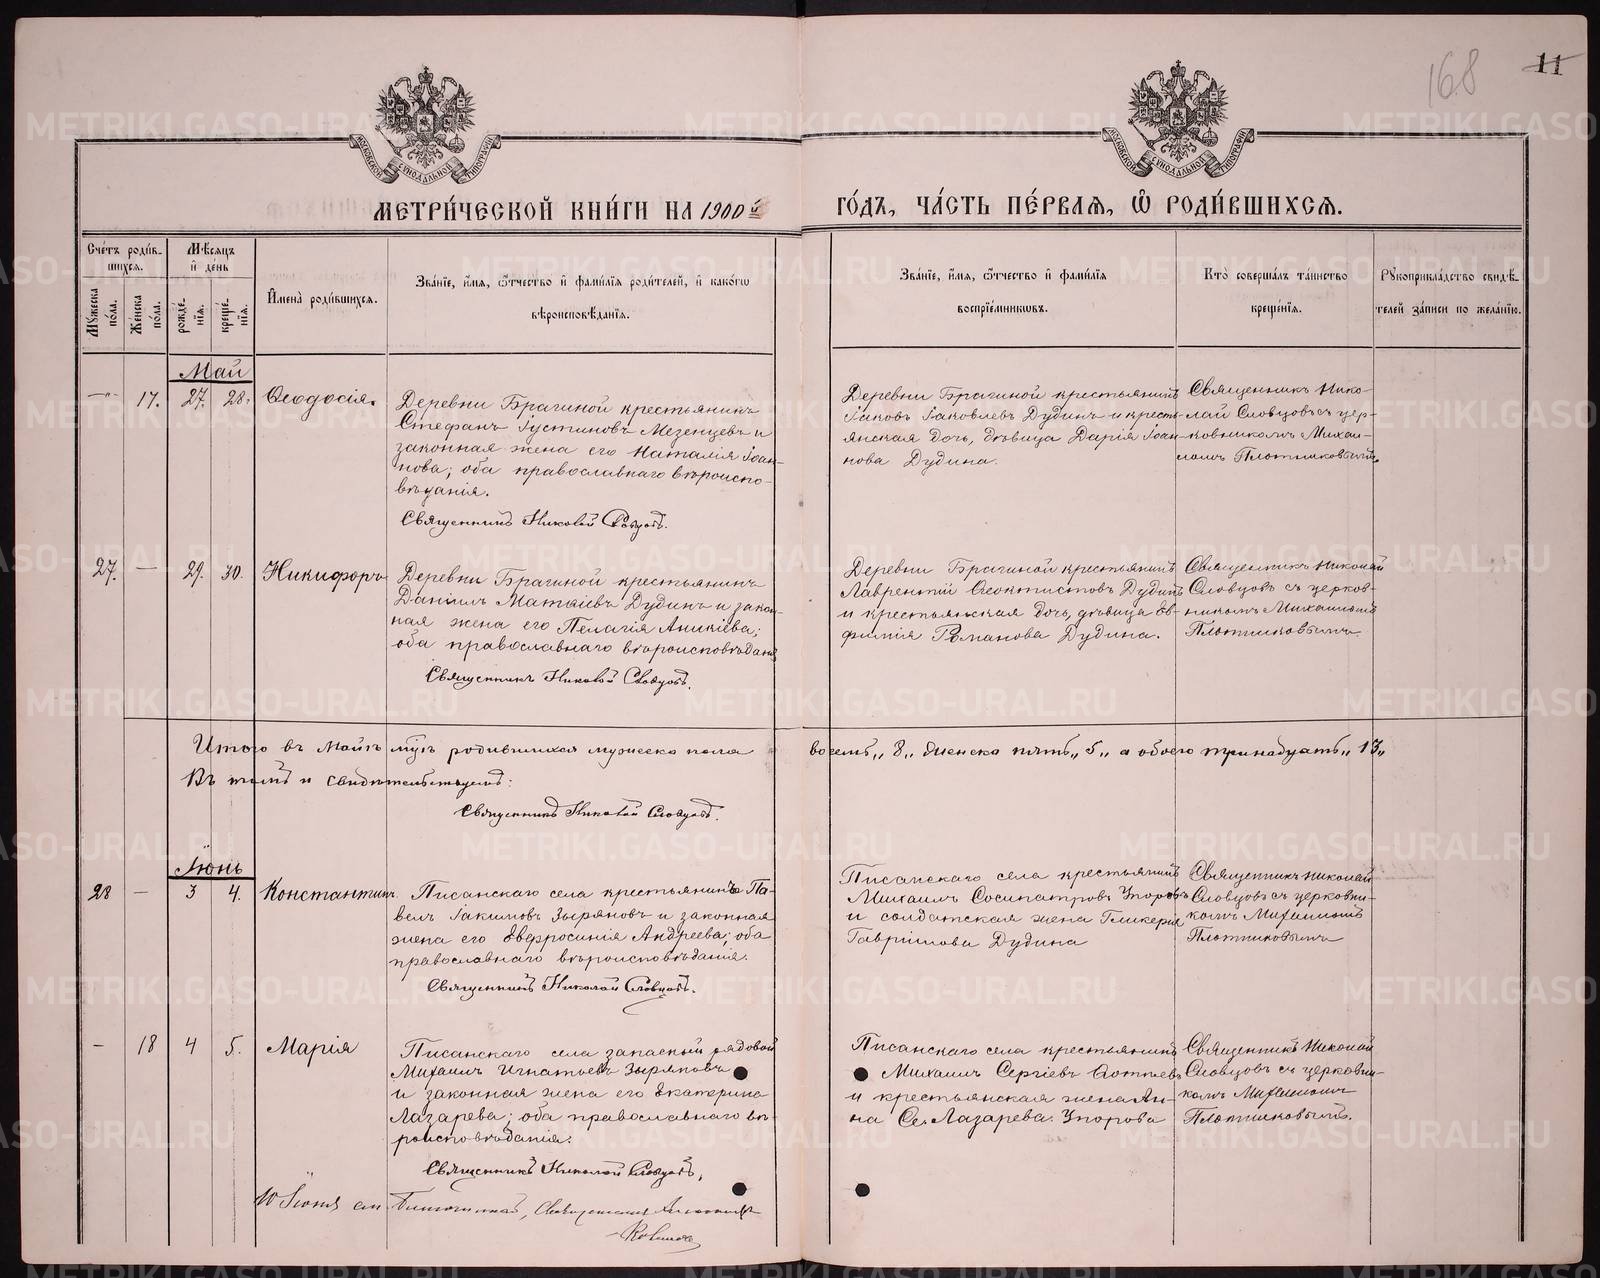 168
11
МОСКОВСКОЙ СУНОДАЛЬНОЙ ТИПОГРАФІИ
МОСКОВСКОЙ СУНОДАЛЬНОЙ ТИПОГРАФІИ
МЕТРИ́ЧЕСКОЙ КНИ́ГИ НА 1900й
ГО́ДЪ, ЧА́СТЬ ПЕ́РВАЯ, Ѡ РОДИ́ВШИХСЯ.
Сче́тъ роди́в-
шихся.
Мѣ́сяцъ
и҆ де́нь
Мꙋ́жеска
по́ла.
Же́нска
по́ла.
рожде́-
нїя.
креще́-
нїя.
И҆мена̀ роди́вшихся.
Зва́нїе, и҆́мя, ѻ҆́тчество и҆ фами́лїя роди́телей, и҆ како́гѡ
вѣроисповѣ́данїя.
Зва́нїе, и҆́мя, ѻ҆́тчество и҆ фами́лїя
воспрїе́мникѡвъ.
Кто̀ соверша́лъ та́инство
креще́нїя.
Рꙋкоприкла́дство свидѣ́-
телей за́писи по жела́нїю.
Май
—"— 17. 27. 28. Ѳеодосія.
Деревни Брагиной крестьянинъ
Стефанъ Іустиновъ Мезенцевъ и
законная жена его Наталія Іоан-
нова; оба православнаго вѣроиспо-
вѣданія.
Священникъ Николай Словцовъ.
Деревни Брагиной крестьянинъ
Іаковъ Іаковлевъ Дудинъ и кресть-
янская дочь, дѣвица Дарія Іоан-
нова Дудина.
Священникъ Нико-
лай Словцовъ съ цер-
ковникомъ Михаи-
ломъ Плотниковымъ.
27. — 29. 30. Никифоръ
Деревни Брагиной крестьянинъ
Даніилъ Матѳіевъ Дудинъ и закон-
ная жена его Пелагія Аникіева;
оба православнаго вѣроисповѣданія
Священникъ Николай Словцовъ.
Деревни Брагиной крестьянинъ
Лаврентій Ѳеоктистовъ Дудинъ
и крестьянская дочь, дѣвица Ев-
фимія Романова Дудина.
Священникъ Николай
Словцовъ съ церков-
никомъ Михаиломъ
Плотниковымъ
Итого въ Маѣ мц҃ѣ родившихся мужеска пола
восемь „8„ женска пять „5„ а обоего тринадцать „13„
Въ томъ и свидѣтельствуемъ:
Священникъ Николай Словцовъ.
Іюнь
28 — 3 4. Константинъ.
Писанскаго села крестьянинъ Па-
велъ Іакимовъ Зыряновъ и законная
жена его Евфросинія Андреева; оба
православнаго вѣроисповѣданія.
Священникъ Николай Словцовъ.
Писанскаго села крестьянинъ
Михаилъ Сосипатровъ Упоровъ
и солдатская жена Гликерія
Гавріилова Дудина
Священникъ Николай
Словцовъ съ церковни-
комъ Михаиломъ
Плотниковымъ
— 18 4 5. Марія
Писанскаго села запасный рядовой
Михаилъ Игнатьевъ Зыряновъ
и законная жена его Екатерина
Лазарева; оба православнаго вѣ-
роисповѣданія.
Священникъ Николай Словцовъ.
Писанскаго села крестьянинъ
Михаилъ Сергіевъ
и крестьянская жена Ан-
на Лазарева Упорова
Священникъ Николай
Словцовъ съ церковни-
комъ Михаиломъ
Плотниковымъ.
10 Іюня
METRIKI.GASO-URAL.RU